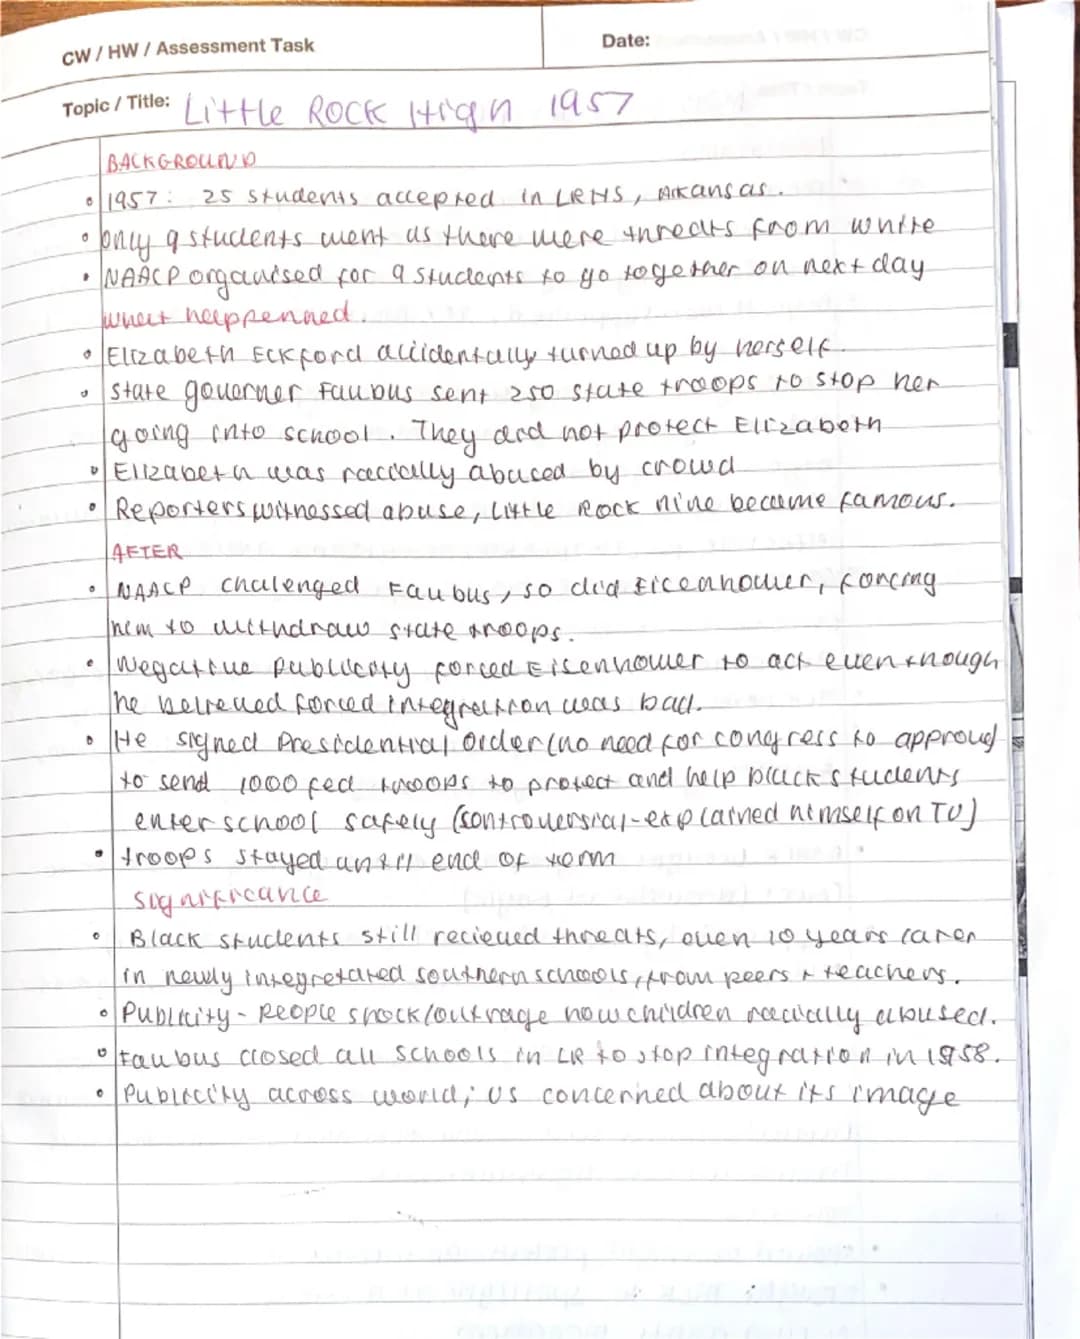 CW / HW / Assessment Task
Date:
Topic / Title: Little Rock High 1957
BACKGROUND
• 1957: 25 students accepted in LRHS, Arkansas.
• only 9 students went as there were threats from white
• NAACP organised for 9 students to go together on next day
what happenned.
• Elizabeth Eckford accidentally turned up by herself.
• state governer Faubus sent 250 state troops to stop her
going into school. They did not protect Elizabeth
• Elizabeth was raccially abuced by crowd
• Reporters witnessed abuse, Little Rock nine became famous.
AFTER
• NAACP chalenged Faubus, so did Eicenhower, forcing
him to withdraw state troops.
• Negative publicity forced Eisenhower to act even though
he believed forced integration was bad.
• He signed Presidential Order (no need for congress to approve)
to send 1000 fed troops to protect and help black students
enter school safely (controversial-explained himself on TV)
• troops stayed until end of term
significance
• Black students still recieved threats, even 10 years later
in newly integretated southern schools, from peers + teachers.
• Publicity - People shock/outrage how children racially abused.
• Faubus closed all schools in LR to stop integration in 1958.
• Publicity across world; US concerned about its image